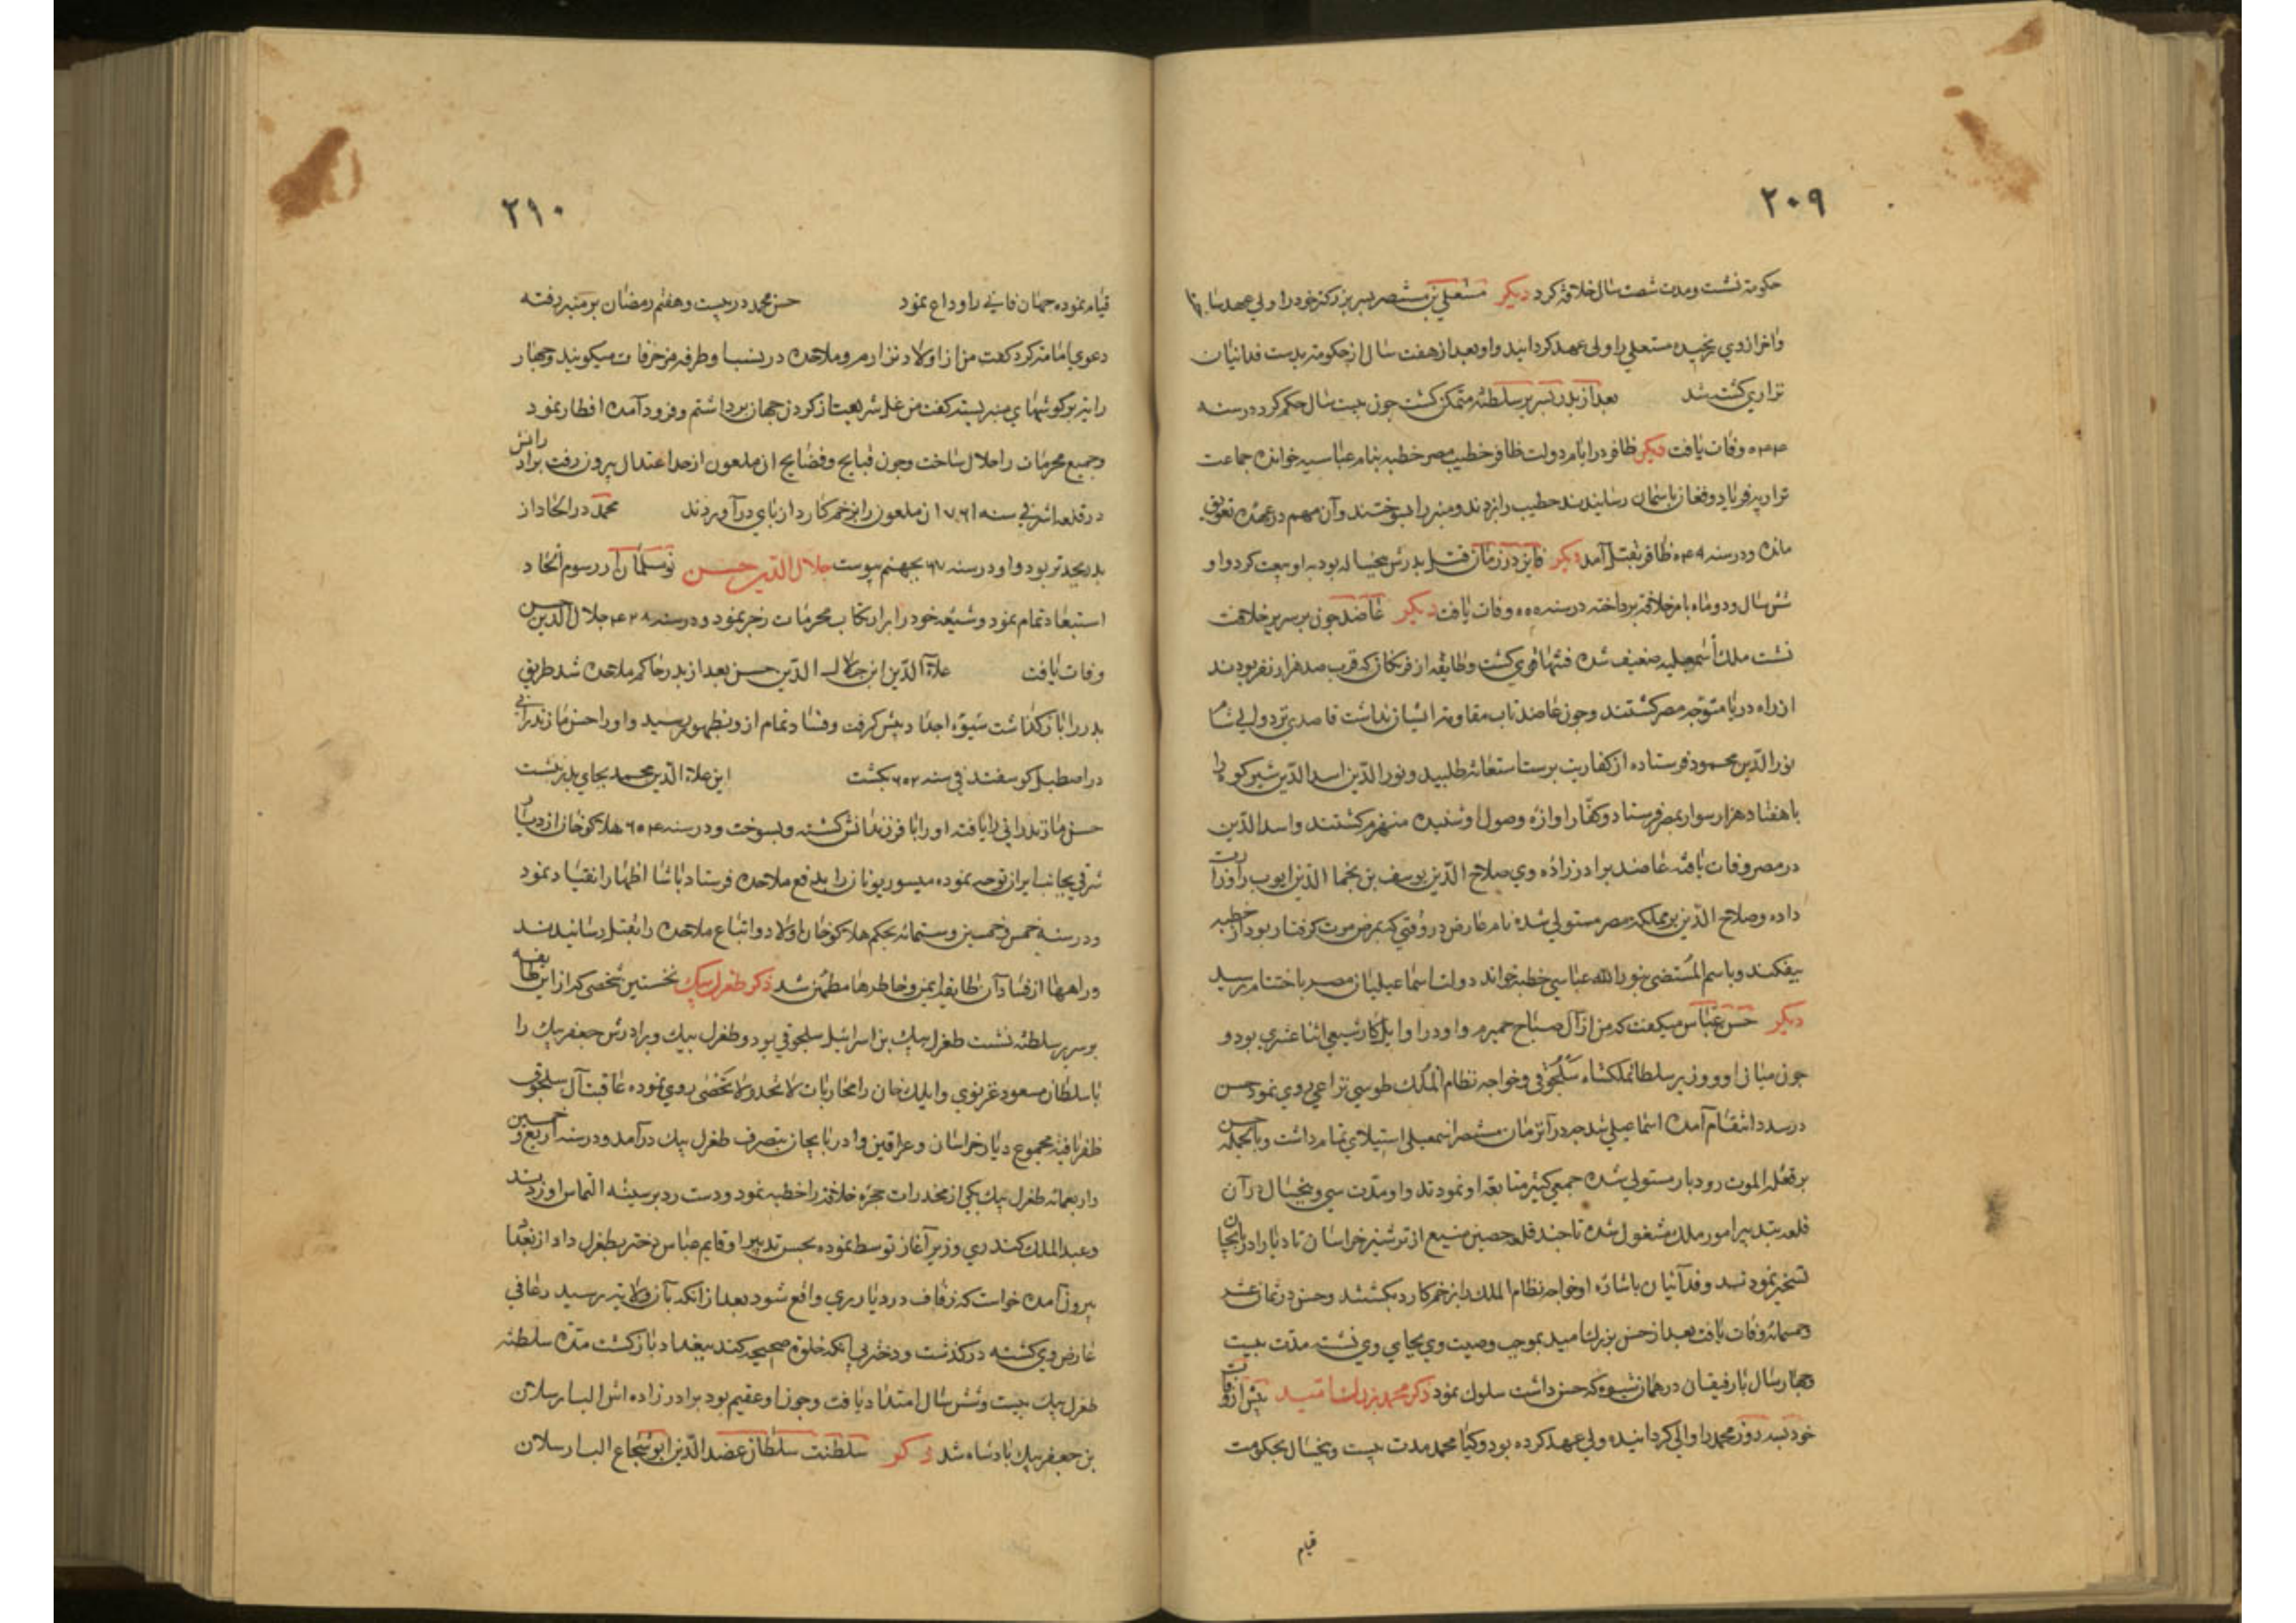 ۲۰۹
حکومة نشست ومدت شصت سال خلافة کرد دیکر مستعلی بن مستنصر پسر بزرکتر خود را ولی عهد ساخته
واخر ازوی رنجیده مستعلی را ولی عهد کردانید واو بعد از هفت سال از حکومة بدست فدائیان
نزاری کشته شد بعد از پدر پسر بر سلطنة متمکن کشت چون بیست سال حکم کرد در سنه
۵۴۴ وفات یافت دیکر ظافر در ایام دولت ظافر خطیب مصر خطبه بنام عباسیه خوانده جماعت
نزاریه فریاد وفغان باسمان رسانیدند خطیب را بزدند ومنبر را بسوختند وآن مهم در عهده تعویق
مانده ودر سنه ۵۴۹ ظافر بقتل آمد دیکر فایز در زمان قتل پدرش پنجساله بود باو بیعت کرد واو
شش سال ودو ماه بامر خلافة پرداخته در سنه ۵۵۵ وفات یافت دیکر عاضد چون بر سریر خلافت
نشست ملک اسمعیلیه ضعیف شده فتنها قوی کشت وطایفه از فرنکان که قرب صد هزار نفر بودند
از راه دریا متوجه مصر کشتند وچون عاضد تاب مقاومة ایشان نداشت قاصدی نزد والی شام
نور الدین محمود فرستاده از کفار بت پرست استعانه طلبید ونور الدین اسد الدین شیرکوه را
با هفتاد هزار سوار بمصر فرستاد وکفار اوازه وصول او شنیده منهزم کشتند واسد الدین
در مصر وفات یافته عاضد برادر زاده وی صلاح الدین یوسف بن نجم الدین ایوب را وزارت
داده وصلاح الدین بر مملکة مصر مستولی شده نام عارض در وقتی که بمرض موت کرفتار بود از خطبه
بیفکند وباسم المستضی بنور الله عباسی خطبه خواند دولت اسماعیلیان مصر باختتام رسید
دیکر حسن عباس میکفت که من از آل صباح حمیرم واو در اوایل کار شیعی اثنا عشری بود و
چون میان او ووزیر سلطان ملکشاه سلجوقی وخواجه نظام الملک طوسی نزاعی روی نمود حسن
در صدد انتقام آمده اسماعیلی شد چه در آنزمان مستنصر اسمعیلی استیلای تمام داشت وبالجمله حسن
بر قلعه الموت رودبار مستولی شده جمعی کثیر متابعة او نمودند واو مدت سی وپنجسال در آن
قلعه بتدبیر امور ملک مشغول شده تا چند قلعه حصین منیع از ترشیز خراسان تا دیار ادربایجان
تسخیر نمودند وفدائیان باشاره او خواجه نظام الملک را بزخم کارد بکشتند وحسن در ثمان عشر
وخمسمائه وفات یافت بعد از حسن بزرک امید بموجب وصیت وی بجای وی نشسته مدت بیست
وچهار سال با رفیقان در همان شیوه که حسن داشت سلوک نمود ذکر محمد بزرک امید پیش از وفات
خود بسه روز محمد را والی کردانیده ولی عهد کرده بود وکیا محمد مدت بیست وپنجسال بحکومت
قیام
۲۱۰
قیام نموده جهان فانی را وداع نمود حسن محمد در بیست وهفتم رمضان بر منبر رفته
دعوی امامة کرد کفت من از اولاد نزارم وملاحده در نسب او طرفه مزخرفات میکویند وچهار
رایة بر کوشهای منبر بسته کفت من غل شریعت از کردن جهان برداشتم وفرود آمده افطار نمود
وجمیع محرمات را حلال ساخت وچون قبایح وفضایح ان ملعون از حد اعتدال بیرون رفت برادرانش
در قلعه لمسر فی سنه ۵۶۱ ان ملعون را بزخم کارد از پای درآوردند محمد در الحاد از
پدر بجدتر بود واو در سنه ۶۰۷ بجهنم پیوست جلال الدین حسن نومسلمان از رسوم الحاد
استبعاد تمام نمود وشیعه خود را بر ارتکاب محرمات زجر نمود ودر سنه جلال الدین حسن
وفات یافت علاء الدین ابن جلال الدین حسن بعد از پدر حاکم ملاحده شد طریق
پدر را باز کذاشت شیوه اجداد پیش کرفت وفساد تمام از وبظهور رسید واو را حسن مازندرانی
در اصطبل کوسفند فی سنه ۶۵۲ بکشت ابن علاء الدین محمد بجای پدر نشست
حسن مازندرانی را یافته او را با فرزندانش کشته وبسوخت ودر سنه ۶۵۴ هلاکو خان از دیار
شرقی بجانب ایران توجه نموده میسور یونان را بدفع ملاحده فرستاد باشا اظهار انقیاد نمود
ودر سنه خمس وخمسین وستمائه بحکم هلاکو خان اولاد واتباع ملاحده را بقتل رسانیدند
وراهها از فساد آن طایفه ایمن وخاطرها مطمئن شد ذکر طغرل بیک نخستین شخصی که از این طایفه
بر سریر سلطنة نشست طغرل بیک بن اسرائیل سلجوقی بود وطغرل بیک وبرادرش جعفر بیک را
با سلطان مسعود غزنوی وایلک خان را محاربات لا تحد ولا تحصی روی نموده عاقبت آل سلجوق
ظفر یافته مجموع دیار خراسان وعراقین وادربایجان بتصرف طغرل بیک درآمد ودر سنه اربع وخمسین
واربعمائه طغرل بیک یکی از مخدرات حجره خلافة را خطبه نمود ودست رد بر سینه التماس او زدند
وعبد الملک کندری وزیر آغاز توسط نموده بحسن تدبیر او قایم عباسی دختر بطغرل داد از بغداد
بیرون آمده خواست که زفاف در دیار ری واقع شود بعد از آنکه بآن ولایة رسید رعافی
عارض وی کشته درکذشت ودختر بی آنکه خلوة صحیحه کند ببغداد بازکشت مدة سلطنة
طغرل بیک بیست وشش سال امتداد یافت وچون او عقیم بود برادر زاده اش الب ارسلان
بن جعفر بیک پادشاه شد ذکر سلطنت سلطان عضد الدین ابو شجاع الب ارسلان